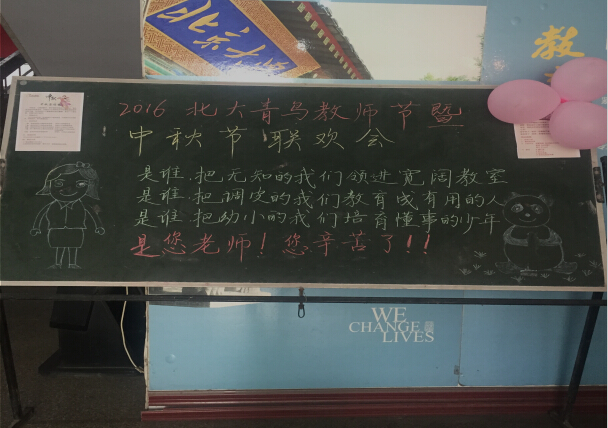 北京大
教
2016 北大青鸟教师节暨
中秋节 联欢会
是谁.把无知的我们领进宽阔教室
是谁.把调皮的我们教育成有用的人
是谁.把幼小的我们培育懂事的少年
是您老师！您辛苦了！！
WE
CHANGE
LIVES